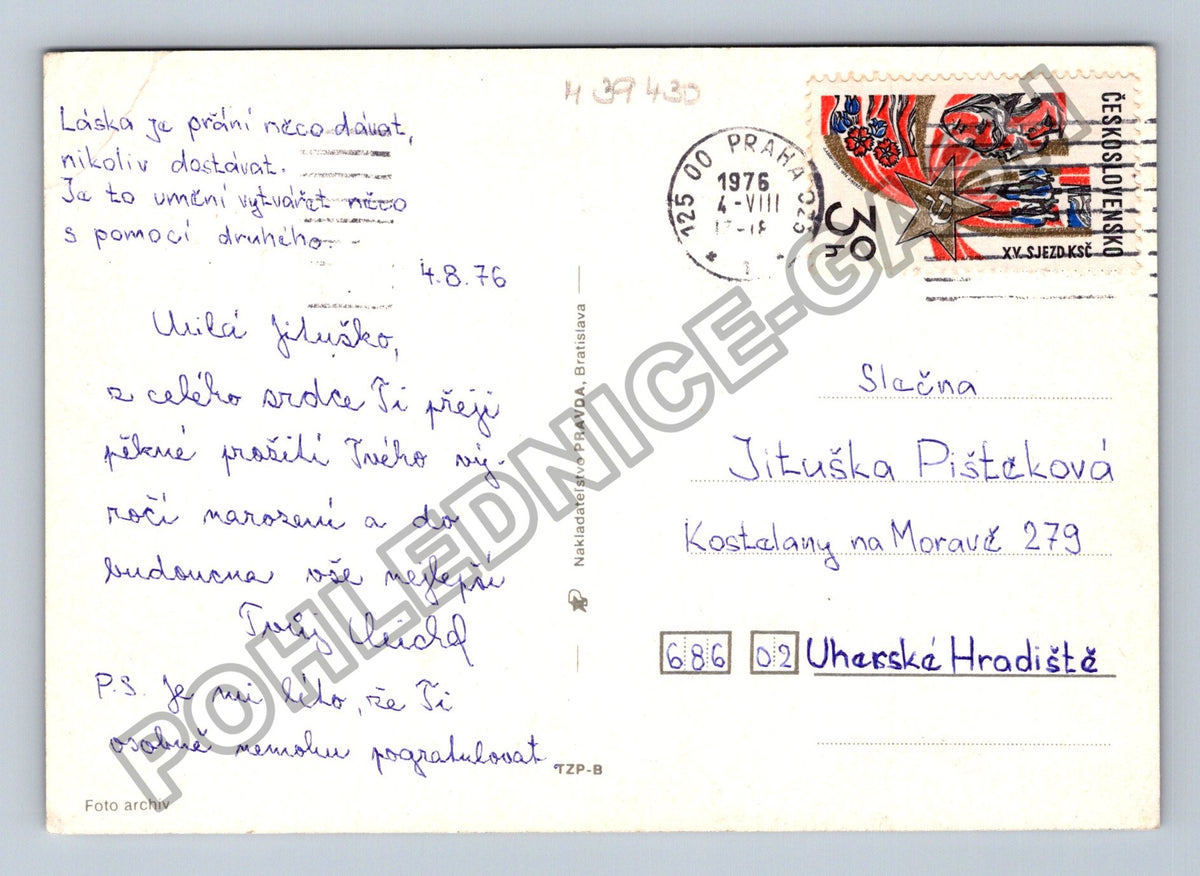 Láska je přání něco dávat,
nikoliv dostávat.
Je to umění vytvářet něco
s pomocí druhého.
4.8.76
Milá Jituško,
z celého srdce Ti přeji
pěkné prožití Tvého vý-
ročí narození a do
budoucna vše nejlepší
Tvůj Michal
P.S. Je mi líto, že Ti
osobně nemohu pogratulovat.
Foto archiv
TZP-B
Nakladateľstvo PRAVDA, Bratislava
H 39 430
125 00 PRAHA 025
1976
4-VIII
1
ČESKOSLOVENSKO
XV. SJEZD KSČ
30h
Slečna
Jituška Pištěková
Kostelany na Moravě 279
686 02 Uherské Hradiště
POHLEDNICE-GALLI